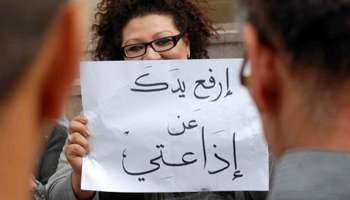 إرفع يدك
عن
إذاعتي